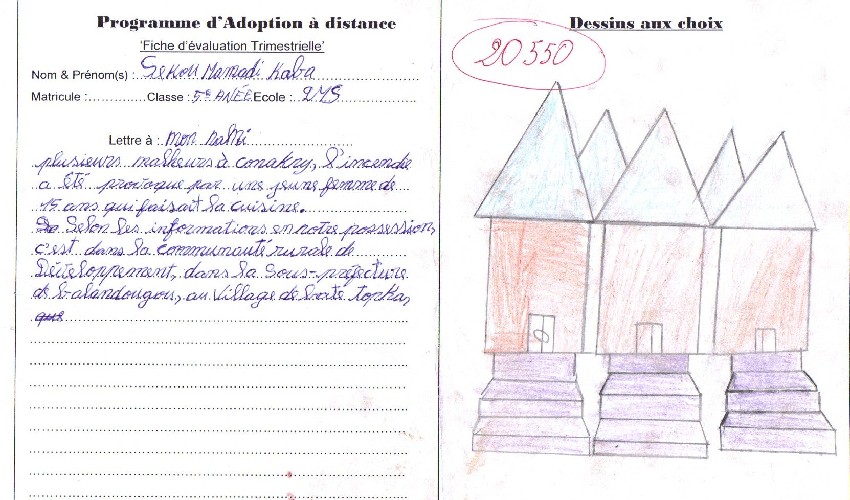 Programme d'Adoption à distance
'Fiche d'évaluation Trimestrielle'
Nom & Prénom(s) : Sekou Mamadi Kaba
Matricule : Classe : 5e ANÉE Ecole :
Lettre à : mon
plusieurs malheurs à conakry, l'incendie
a été provoque par une jeune femme de
15 ans qui faisait la cuisine.
Selon les informations en notre possession,
c'est dans la communauté rurale de
Développement, dans la Sous-préfecture
de balandougou, au village de
Dessins aux choix
20550